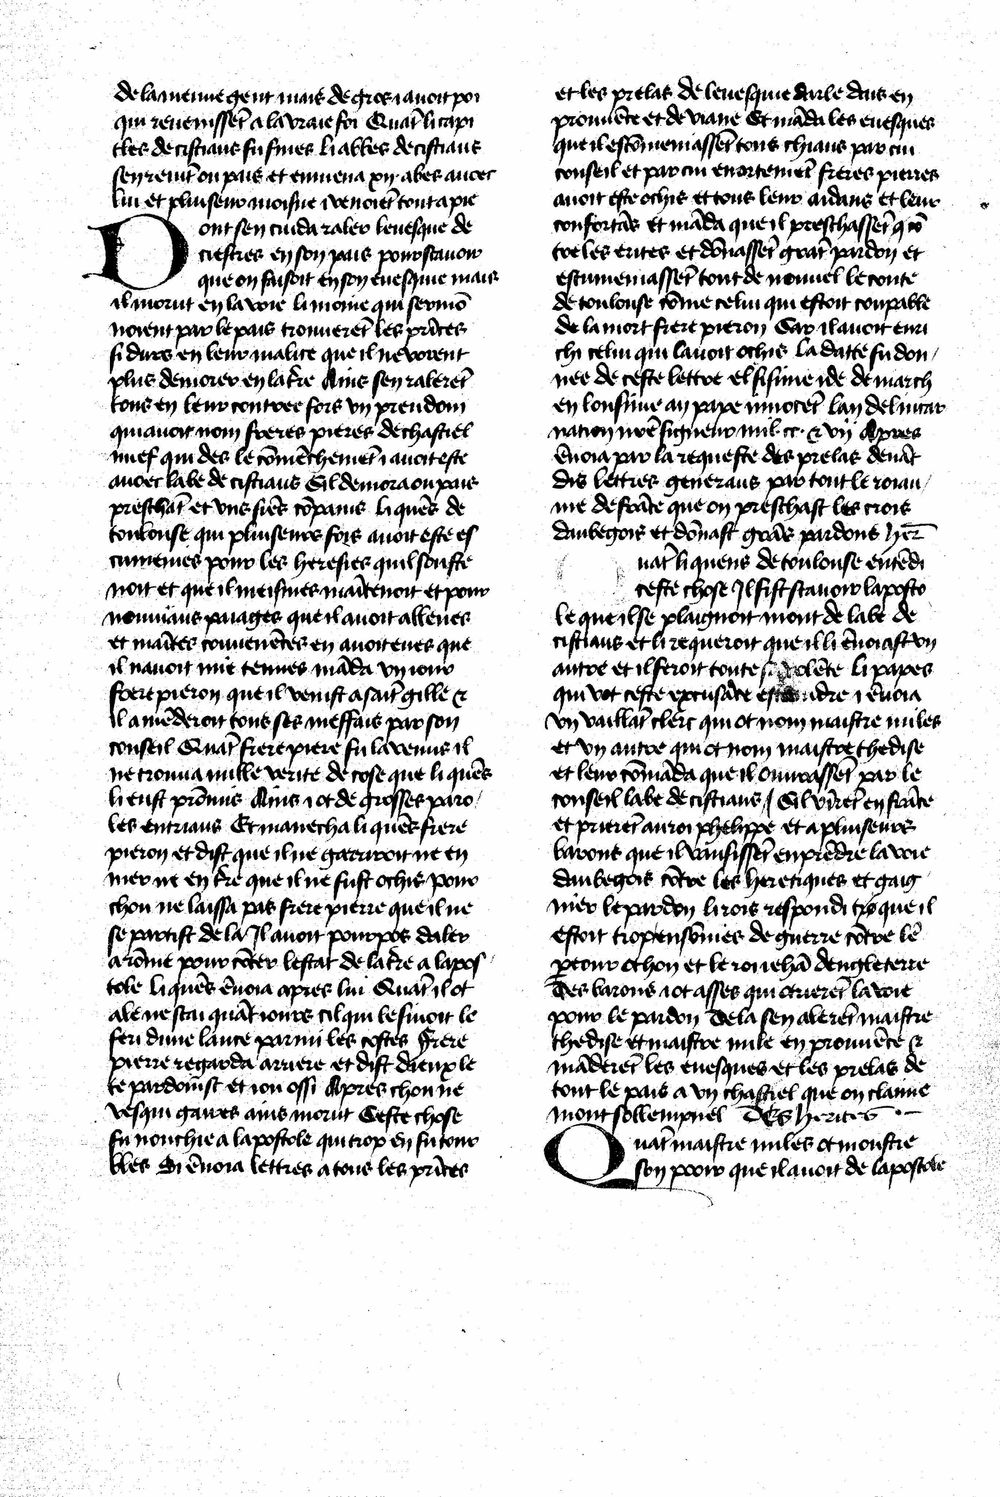 de la menue gent mais de gros i auoit poi
qui reuenissēt a la vraie foi Quāt li capi
tles de cistiaus fu fines li abbes de cistiaus
sen reuīt ou pais et enmena xij abes auoec
lui et pluiseur moisne i venoiēt tout a pie
Dont sen cuida raler leuesque de
ciestres en son pais pour scauoir
que on faisoit en son euesquie mais
il morut en la voie li moine qui sermō
noient par le pais trouuerēt les prīces
si durs en leur malice que il ne vorent
plus demorer en la tr̄e Ains sen ralerēt
tous en leur contree fors vn preudom
qui auoit nom freres pieres de chastiel
nuef qui des le cōmēchemēt i auoit este
auoec labe de cistiaus Cil demora ou pais
preschāt et vns siēs cōpains li quēs de
toulouse qui pluiseurs fois auoit este es
cumenies pour les heresies quil souste
noit et que il meismes maītenoit et pour
nouuiaus paages que il auoit alleues
et maītes conuenēces en auoit eues que
il nauoit mie tenues māda vn iour
frere pieron que il venist a saīt gille &
il amēderoit tous ses meffais par son
conseil Quāt frere piere fu la venus il
ne trouua nulle verite de cose que li quēs
li eust prōmis Ains i ot de grosses paro
les entriaus Et manecha li quēs frere
pieron et dist que il ne garriroit ne en
mer ne en tr̄e que il ne fust ochis pour
chou ne laissa pas frere pierre que il ne
se partist de la Il auoit pourpos daler
a rōme pour cōter lestat de la tr̄e a lapos
tole li quēs ēuoia apres lui Quāt il ot
ale ne scai quāt iours cil qui le siuoit le
feri dune lance parmi les costes Frere
pierre regarda arriere et dist dieux le
te pardoīnst et iou ossi Apres chou ne
vesqui gaires ains morut Ceste chose
fu nonchie a lapostole qui trop en fu tour
bles Si ēuoia lettres a tous les prīces
et les prelas de leuesquie darle dais en
prouuēce et de viane Et māda les euesques
que il escōmeniassēt tous chiaus par cui
conseil et par cui enortemēt freres pierres
auoit este ochis et tous leur aidans et leur
confortās et māda que il preschassēt q̄ cō
tre les erites et dōnassēt grāt pardon et
escumeniassēt tout de nouuel le conte
de toulouse cōme celui qui estoit coupable
de la mort frere pieron Car il auoit enri
chi celui qui lauoit ochis La datte fu don
nee de ceste lettre el sisime ide de march
en lonsime an pape innocēt lan de lincar
nation nr̄e signeur mil. cc. & vij Apres
ēuoia par la requeste des prelas deuāt
dis lettres generaus par tout le roiau
me de frāce que on preschast les crois
daubegois et dōnast grās pardons her̄
uāt li quens de toulouse entēdi
ceste chose Il fist scauoir laposto
le que il se plaignoit mout de labe de
cistiaus et li requeroit que il li ēuoiast vn
autre et il feroit toute sa volēte li papes
qui vot ceste excusāce estaindre i ēuoia
vn vaillāt clerc qui ot nom maistre miles
et vn autre qui ot nom maistre thedise
et leur cōmāda que il ouurassēt par le
conseil labe de cistiaus Cil vīrēt en frāce
et prierēt au roi phelippe et a pluiseurs
barons que il vausissēt enprēdre la voie
daubegois cōtre les heretiques et gaig
nier le pardon li rois respondi tp̄ que il
estoit trop ensōnies de guerre cōtre lē
preour othon et le roi iehā dengleterre
Des barons i ot asses qui otrierēt la voie
pour le pardon De la sen alerēt maistre
thedise et maistre mile en prouuēce &
māderēt les euesques et les prelas de
tout le pais a vn chastiel que on claime
mont sollempnel Des herites
Quāt maistre miles ot moustre
son pooir que il auoit de lapostole